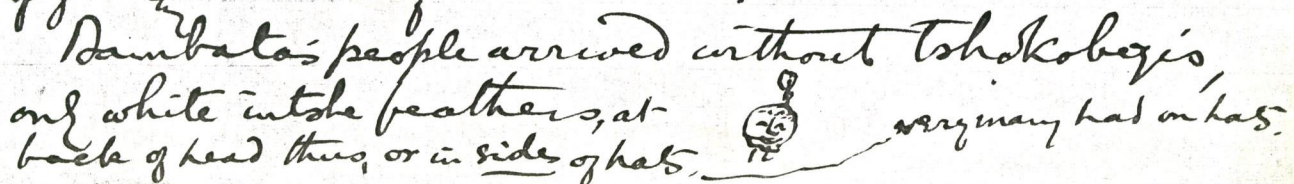 Bambata's people arrived without tshokobezis,
only white intshe feathers, at
back of head thus, or in sides of hats. very many had on hats.